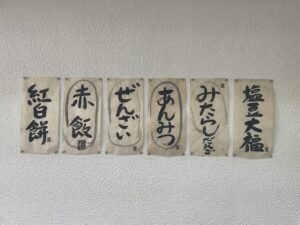 塩豆大福
みたらしだんご
あんみつ
ぜんざい
赤飯
紅白餅